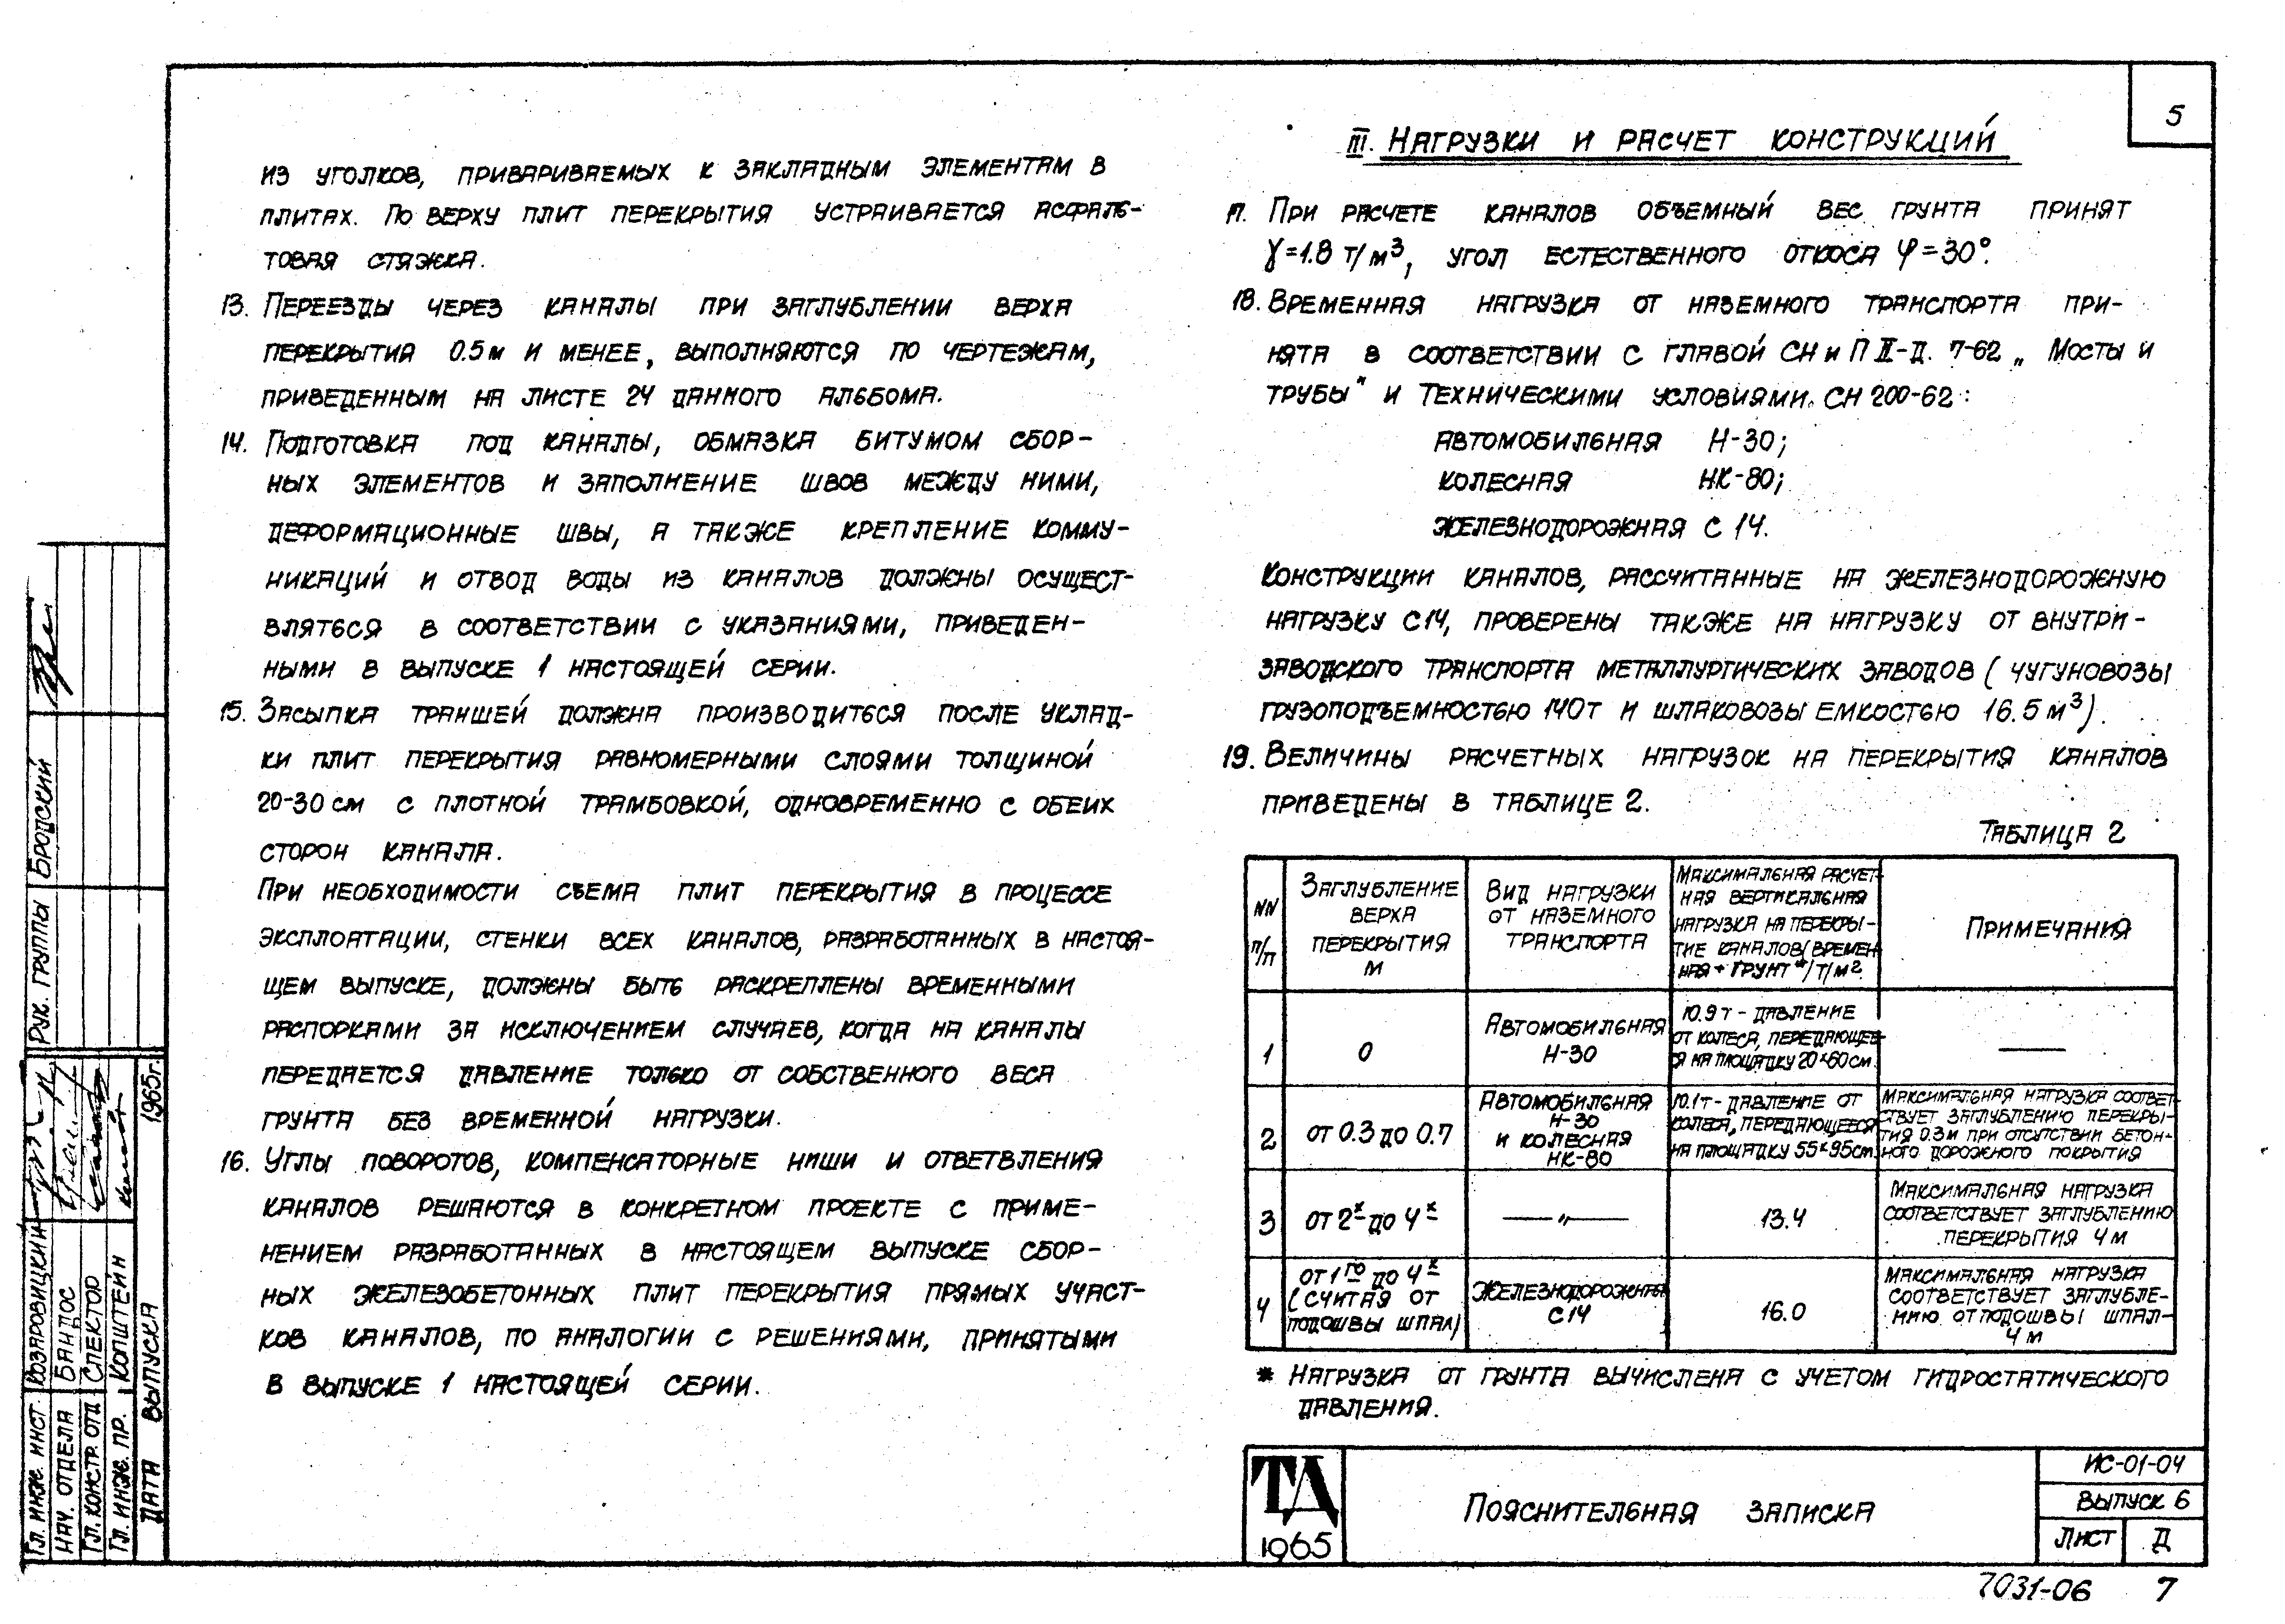 5
из уголков, привариваемых к закладным элементам в
плитах. По верху плит перекрытия устраивается асфаль-
товая стяжка.
13. Переезды через каналы при заглублении верха
перекрытия 0.5 м и менее, выполняются по чертежам,
приведенным на листе 24 данного альбома.
14. Подготовка под каналы, обмазка битумом сбор-
ных элементов и заполнение швов между ними,
деформационные швы, а также крепление комму-
никаций и отвод воды из каналов должны осущест-
вляться в соответствии с указаниями, приведен-
ными в выпуске 1 настоящей серии.
15. Засыпка траншей должна производиться после уклад-
ки плит перекрытия равномерными слоями толщиной
20-30 см с плотной трамбовкой, одновременно с обеих
сторон канала.
При необходимости съема плит перекрытия в процессе
эксплоатации, стенки всех каналов, разработанных в настоя-
щем выпуске, должны быть раскреплены временными
распорками за исключением случаев, когда на каналы
передается давление только от собственного веса
грунта без временной нагрузки.
16. Углы поворотов, компенсаторные ниши и ответвления
каналов решаются в конкретном проекте с приме-
нением разработанных в настоящем выпуске сбор-
ных железобетонных плит перекрытия прямых участ-
ков каналов, по аналогии с решениями, принятыми
в выпуске 1 настоящей серии.
III. Нагрузки и расчет конструкций
17. При расчете каналов объемный вес грунта принят
γ=1.8 т/м³, угол естественного откоса φ=30°.
18. Временная нагрузка от наземного транспорта при-
нята в соответствии с главой СН и П II-Д. 7-62 „Мосты и
трубы" и техническими условиями СН 200-62:
автомобильная Н-30;
колесная НК-80;
железнодорожная С 14.
Конструкции каналов, рассчитанные на железнодорожную
нагрузку С14, проверены также на нагрузку от внутри-
заводского транспорта металлургических заводов (чугуновозы
грузоподъемностью 140т и шлаковозы емкостью 16.5 м³).
19. Величины расчетных нагрузок на перекрытия каналов
приведены в таблице 2.
Таблица 2
NN
п/п
Заглубление
верха
перекрытия
м
Вид нагрузки
от наземного
транспорта
Максимальная расчет-
ная вертикальная
нагрузка на перекры-
тие каналов (времен-
ная + грунт*/т/м²
Примечания
1
0
Автомобильная
Н-30
10.9т - давление
от колеса, передающее-
я на площадку 20×60см
—
2
от 0.3 до 0.7
Автомобильная
Н-30
и колесная
НК-80
10.1т- давление от
колеса, передающееся
на площадку 55×95см
Максимальная нагрузка соответ-
ствует заглублению перекры-
тия 0.3м при отсутствии бетон-
ного дорожного покрытия
3
от 2х до 4х
— „ —
13.4
Максимальная нагрузка
соответствует заглублению
перекрытия 4 м
4
от 1го до 4х
(считая от
подошвы шпал)
Железнодорожная
С14
16.0
Максимальная нагрузка
соответствует заглубле-
нию от подошвы шпал-
4 м
* Нагрузка от грунта вычислена с учетом гидростатического
давления.
ТД
1965
Пояснительная записка
ИС-01-04
Выпуск 6
Лист Д
7031-06 7
Рук. группы Бродский
Гл. инж. инст. Розаровицкий
Нач. отдела Бандос
Гл. констр. отд Спектор
Гл. инж. пр. Копштейн
Дата выпуска 1965г.